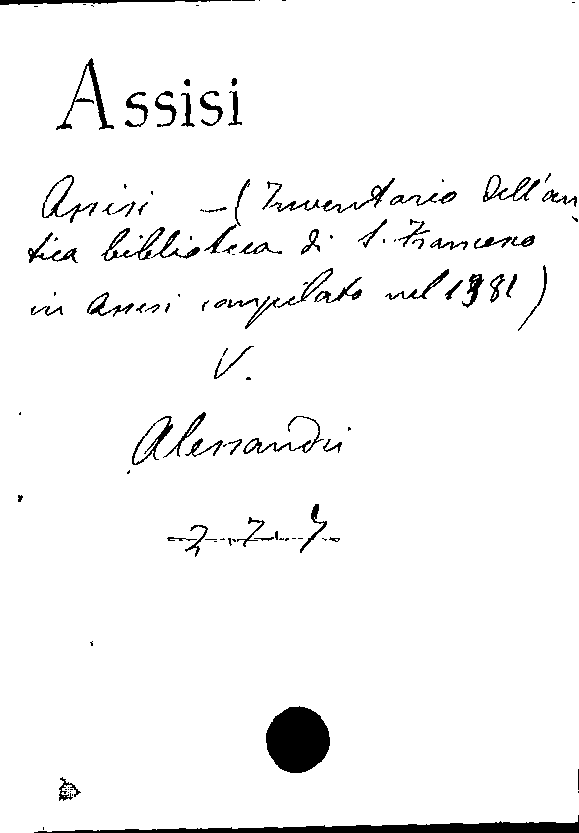 Assisi
Assisi – (Inventario dell'an
tica biblioteca di S. Francesco
in Assisi compilato nel 1381)
V.
Alessandri
2.7.4